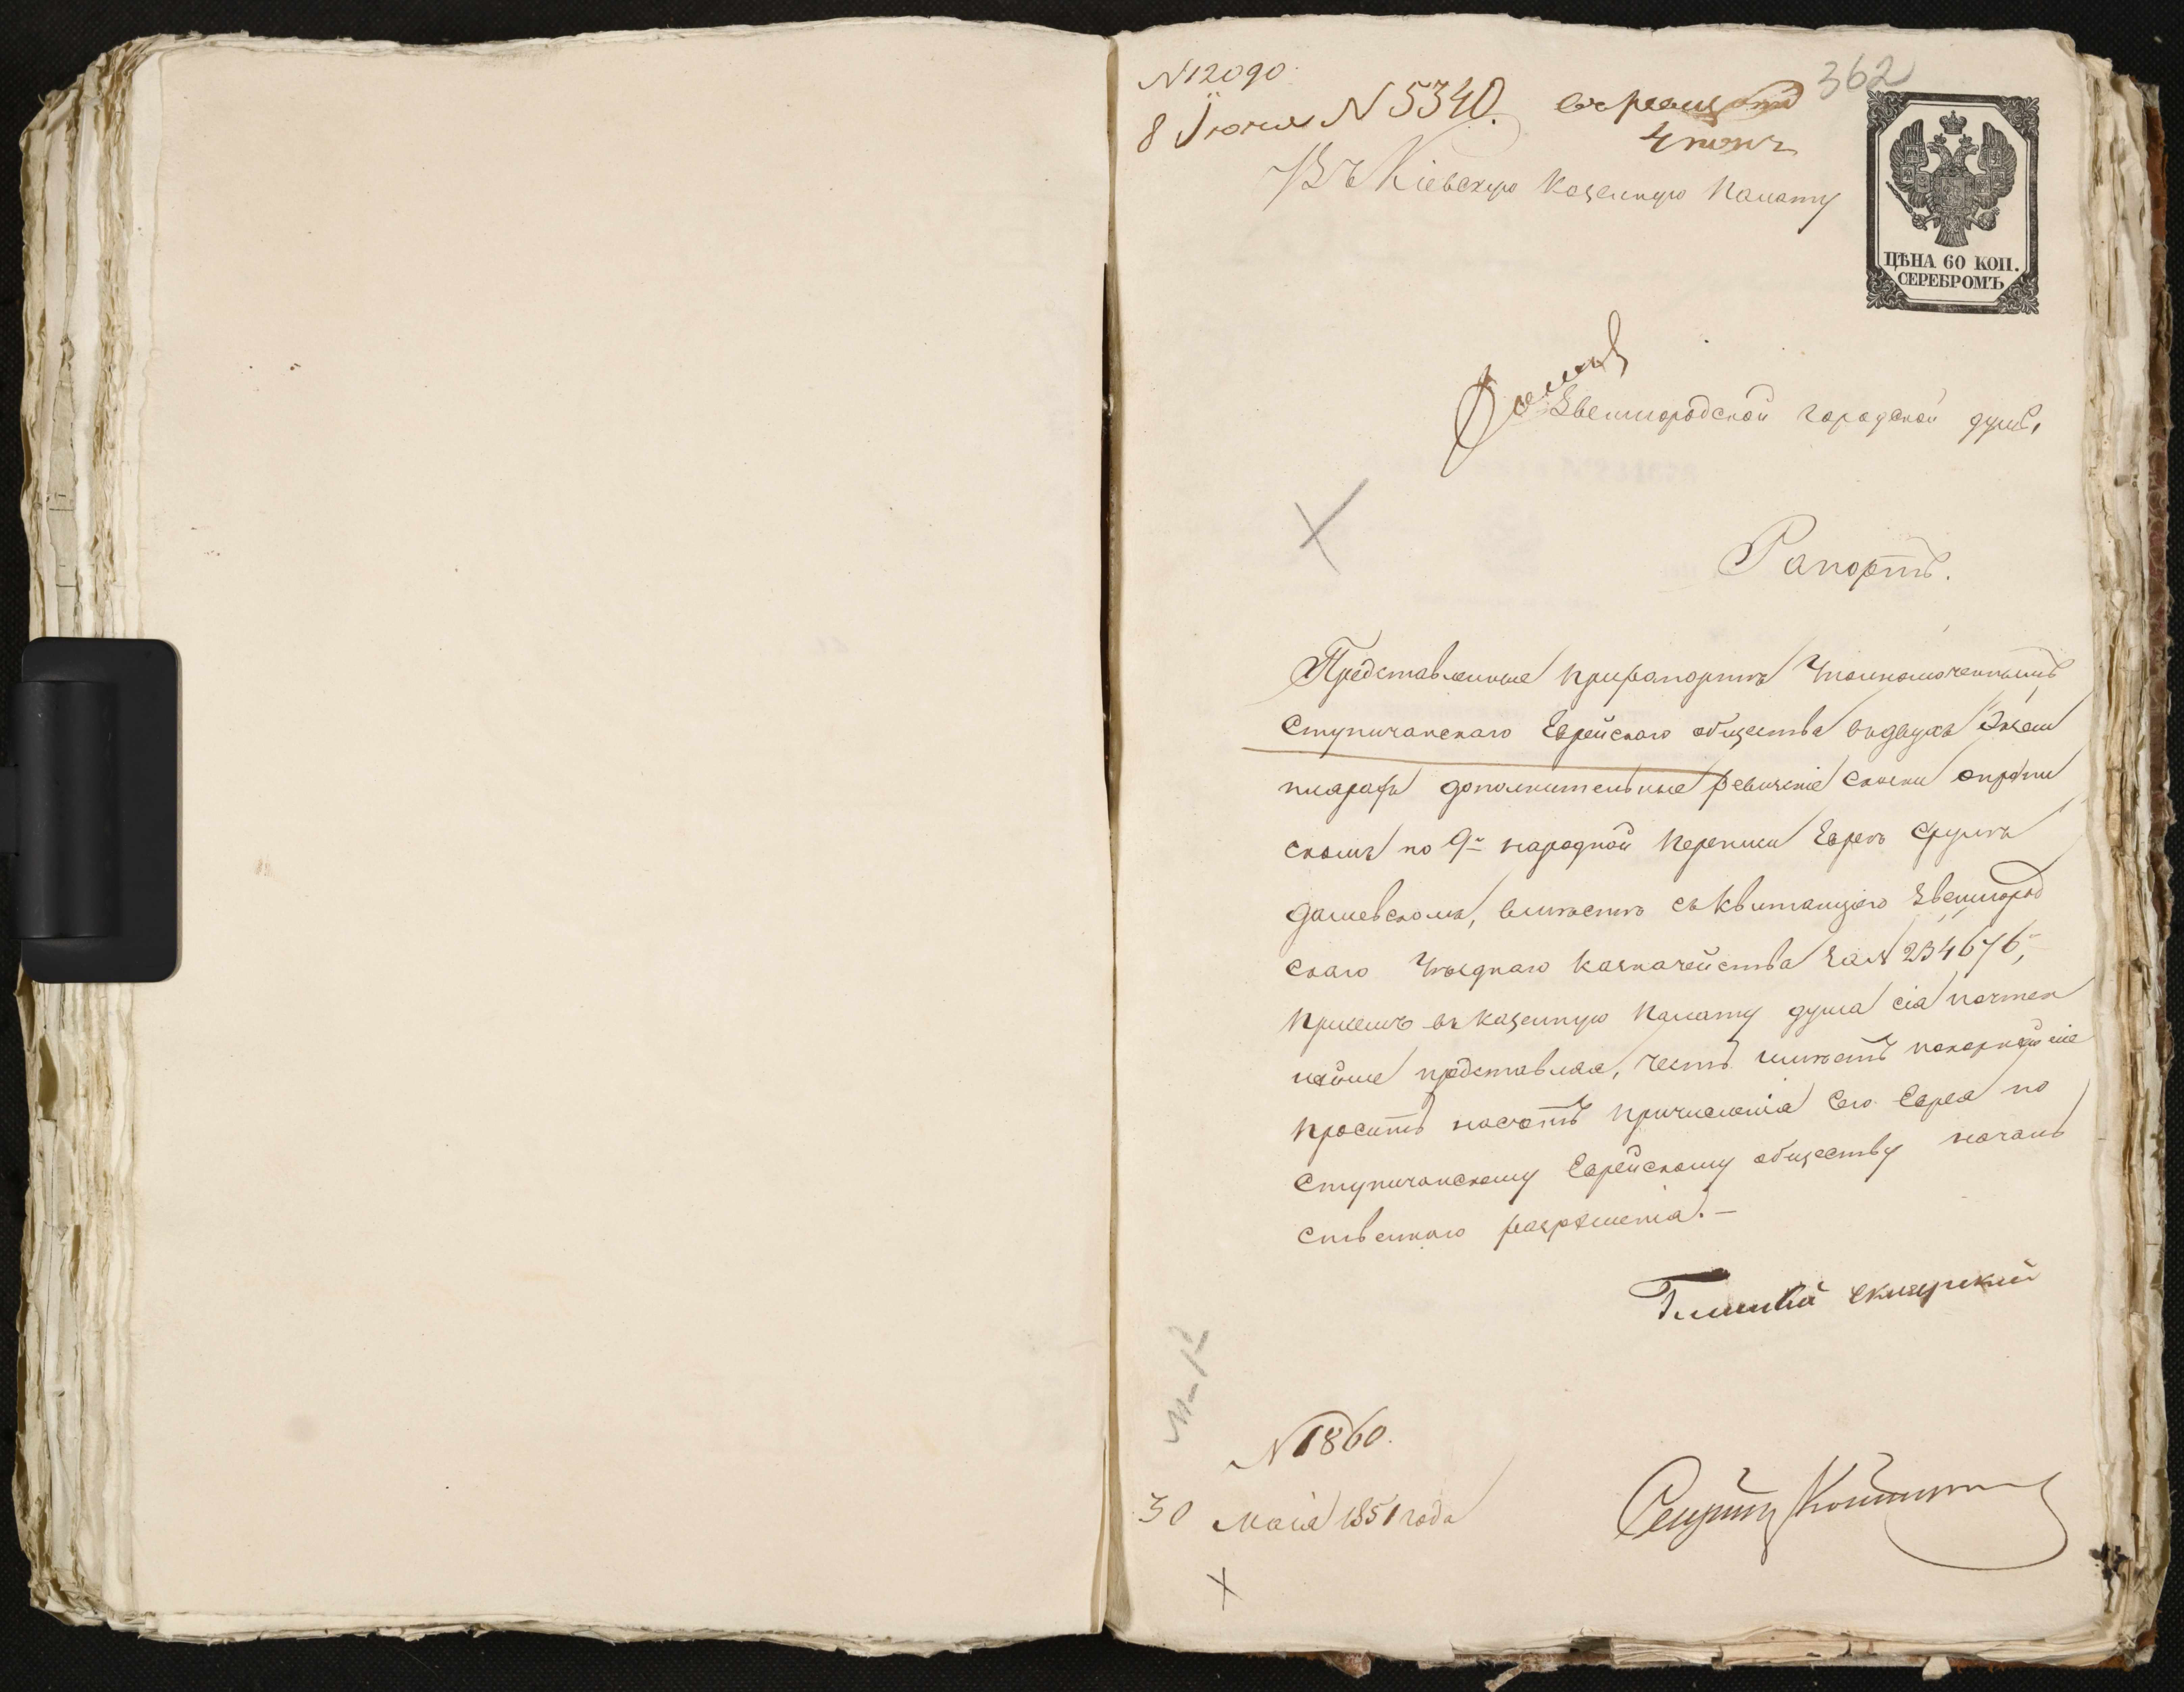 N 12090.
362
8 Іюня N 5340.
4 июня
Въ Кіевскую Казенную Палату
ЦѢНА 60 КОП.
СЕРЕБРОМЪ
Звенигородской городской думы,
Рапортъ.
Представленные прирапортѣ Уполномоченнымъ
Ступичанскаго Еврейскаго общества въдвухъ Экзем
плярахъ дополнительные ревизскіе сказки опропи
сномъ по 9й народной переписи Евреѣ Срулѣ
Дашевскомъ, вмѣстѣ съ Квитанціею Звенигород
скаго Уѣзднаго Казначейства за N 234676,
приемъ въ Казенную Палату дума сія почтен
нѣйше представляя, честь имѣетъ покорнѣйше
просить насчетъ причисленія Сего Еврея по
Ступичанскому Еврейскому обществу началь
ственнаго разрѣшенія.—
N 1860.
30 Маія 1851 года